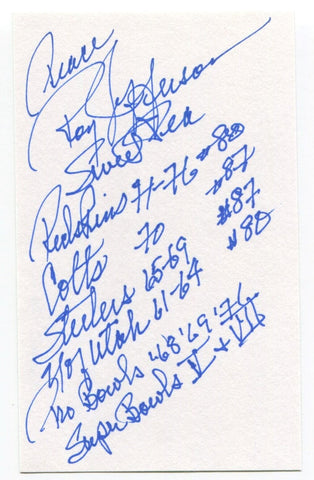 Peace
Roy Jefferson
Sweet Pea
Redskins 71-76 #80
Colts 70 #87
Steelers 65-69 #87
U of Utah 61-64 #88
Pro Bowls '68 '69
Super Bowls V + VII